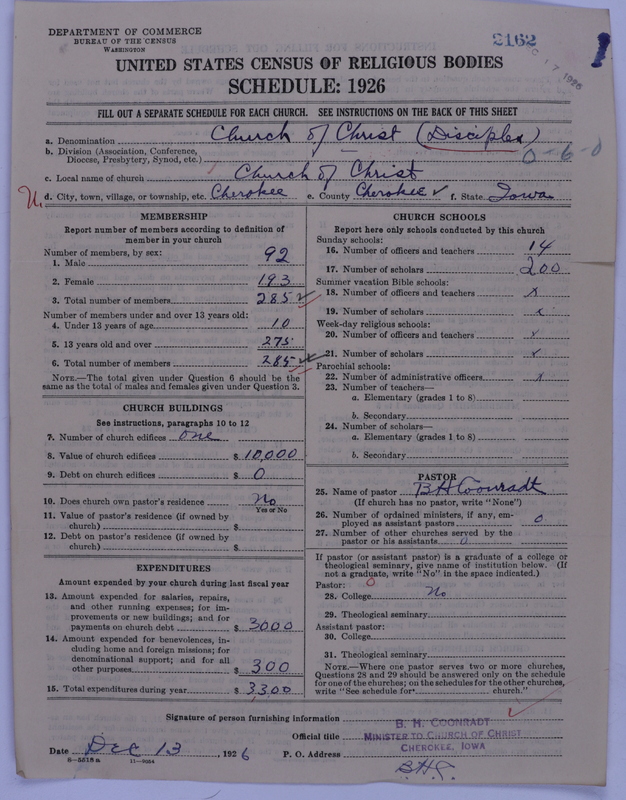 DEPARTMENT OF COMMERCE
BUREAU OF THE CENSUS
WASHINGTON
2162
DEC 17 1926
UNITED STATES CENSUS OF RELIGIOUS BODIES
SCHEDULE: 1926
FILL OUT A SEPARATE SCHEDULE FOR EACH CHURCH. SEE INSTRUCTIONS ON THE BACK OF THIS SHEET
a. Denomination Church of Christ (Disciples)
b. Division (Association, Conference, Diocese, Presbytery, Synod, etc.) 0-6-0
c. Local name of church Church of Christ
d. City, town, village, or township, etc. Cherokee e. County Cherokee f. State Iowa
MEMBERSHIP
Report number of members according to definition of member in your church
Number of members, by sex:
1. Male 92
2. Female 193
3. Total number of members 285
Number of members under and over 13 years old:
4. Under 13 years of age 10
5. 13 years old and over 275
6. Total number of members 285
NOTE.—The total given under Question 6 should be the same as the total of males and females given under Question 3.
CHURCH BUILDINGS
See instructions, paragraphs 10 to 12
7. Number of church edifices one
8. Value of church edifices $ 10,000
9. Debt on church edifices $ 0
10. Does church own pastor's residence No
Yes or No
11. Value of pastor's residence (if owned by church) $
12. Debt on pastor's residence (if owned by church) $
EXPENDITURES
Amount expended by your church during last fiscal year
13. Amount expended for salaries, repairs, and other running expenses; for improvements or new buildings; and for payments on church debt $ 3000
14. Amount expended for benevolences, including home and foreign missions; for denominational support; and for all other purposes $ 300
15. Total expenditures during year $ 3,300
CHURCH SCHOOLS
Report here only schools conducted by this church
Sunday schools:
16. Number of officers and teachers 14
17. Number of scholars 200
Summer vacation Bible schools:
18. Number of officers and teachers x
19. Number of scholars x
Week-day religious schools:
20. Number of officers and teachers x
21. Number of scholars x
Parochial schools:
22. Number of administrative officers x
23. Number of teachers—
a. Elementary (grades 1 to 8)
b. Secondary
24. Number of scholars—
a. Elementary (grades 1 to 8)
b. Secondary
PASTOR
25. Name of pastor B H Coonradt
(If church has no pastor, write "None")
26. Number of ordained ministers, if any, employed as assistant pastors 0
27. Number of other churches served by the pastor or his assistants 0
If pastor (or assistant pastor) is a graduate of a college or theological seminary, give name of institution below. (If not a graduate, write "No" in the space indicated.)
Pastor: 0
28. College No
29. Theological seminary
Assistant pastor:
30. College
31. Theological seminary
NOTE.—Where one pastor serves two or more churches, Questions 28 and 29 should be answered only on the schedule for one of the churches; on the schedules for the other churches, write "See schedule for church."
Signature of person furnishing information B. H. COONRADT
Official title MINISTER TO CHURCH OF CHRIST
Date Dec 13, 1926 P. O. Address CHEROKEE, IOWA
8-5518a 11-9054
B.H.C.